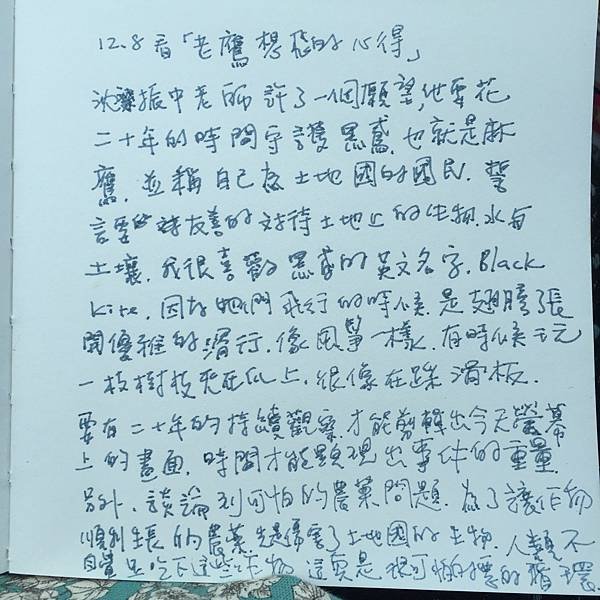 12.8看「老鷹想飛的心得」
沈振中老師許了一個願望,他要花
二十年的時間守護黑鳶,也就是麻
鷹,並稱自己為土地國的國民,誓
言要友善的對待土地上的生物.水與
土壤.我很喜歡黑鳶的英文名字,Black
Kite,因為她們飛行的時候,是翅膀張
開優雅的滑行,像風箏一樣,有時候玩
一枝樹枝 上,很像在踩滑板.
要有二十年的持續觀察,才能剪輯出今天螢幕
上的畫面,時間才能顯現出事件的重量.
另外,談論到可怕的農藥問題,為了讓作物
順利生長的農藥先是傷害了土地國的生物,人類不
自覺 吃下這些作物 這真是很可怕 的循環.